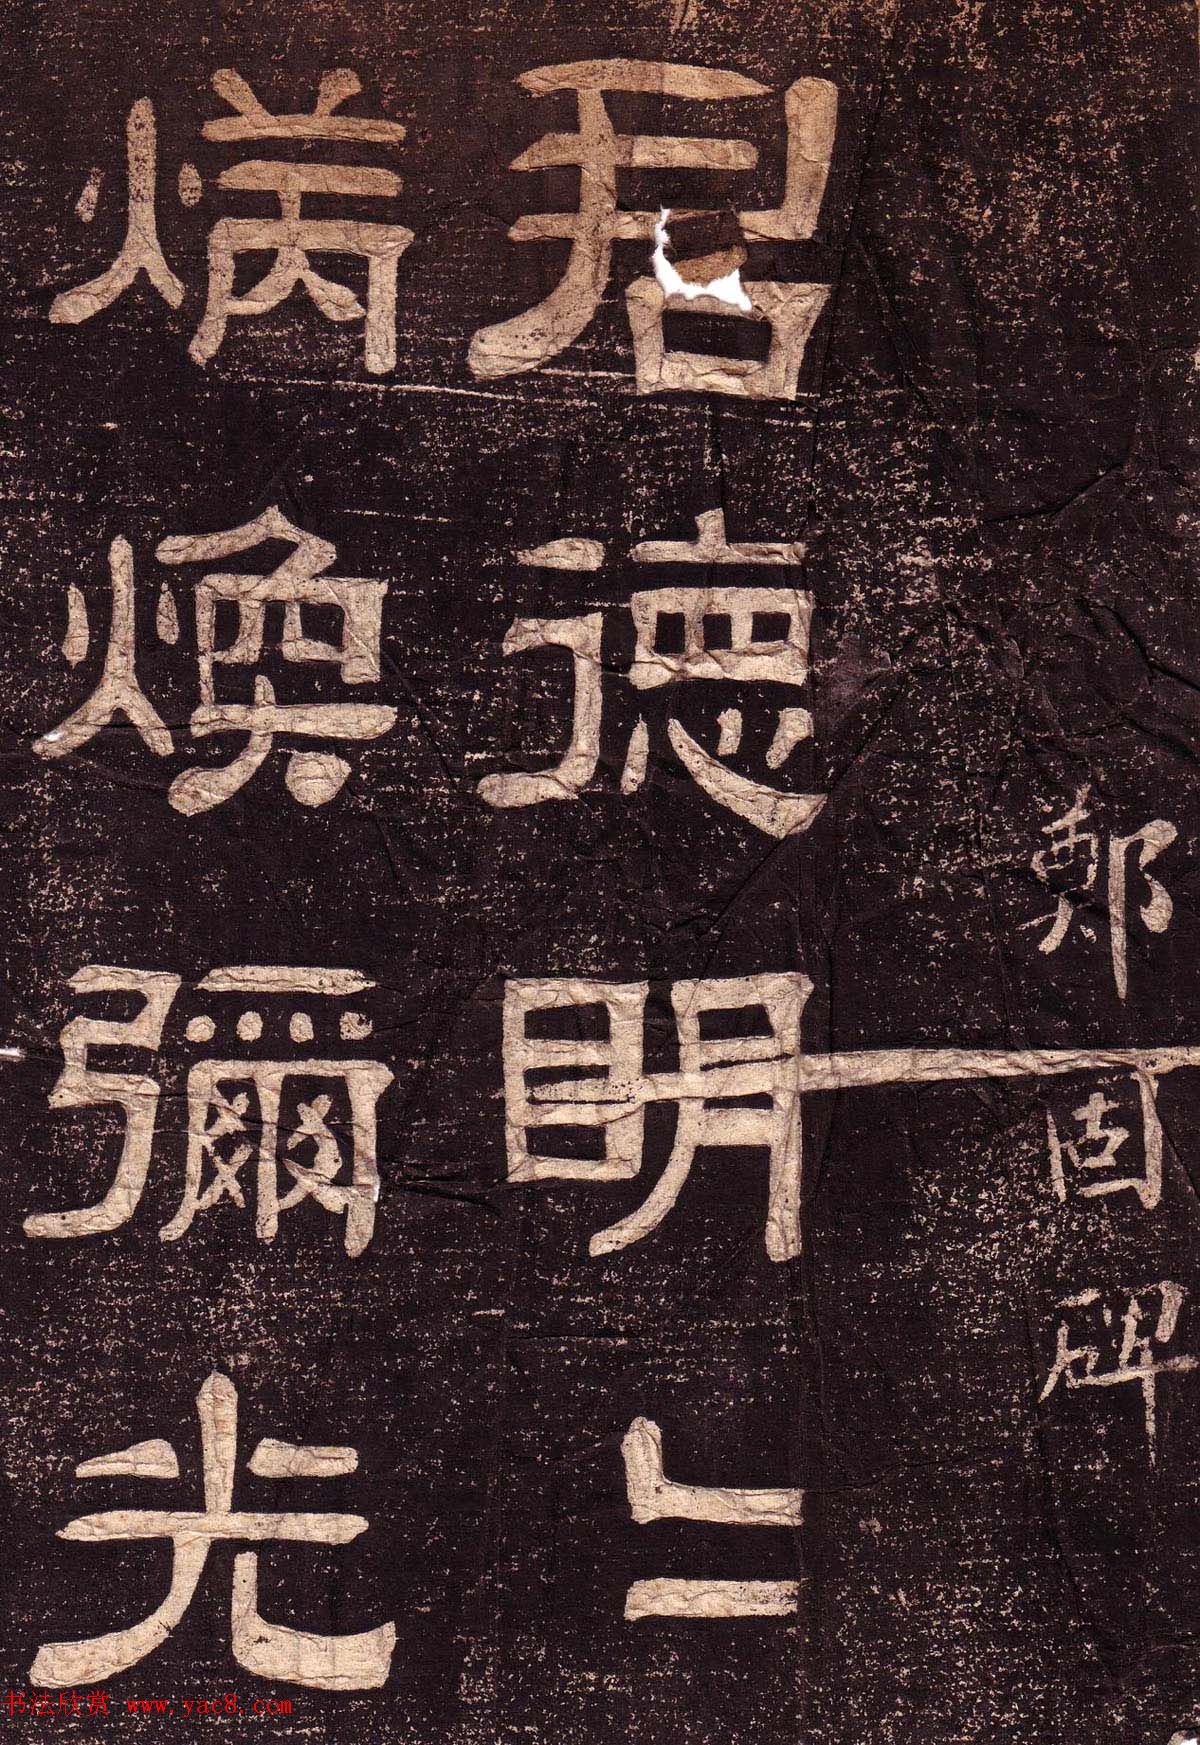 鄭固碑
君德明〻
炳煥彌光
书法欣赏 www.yac8.com